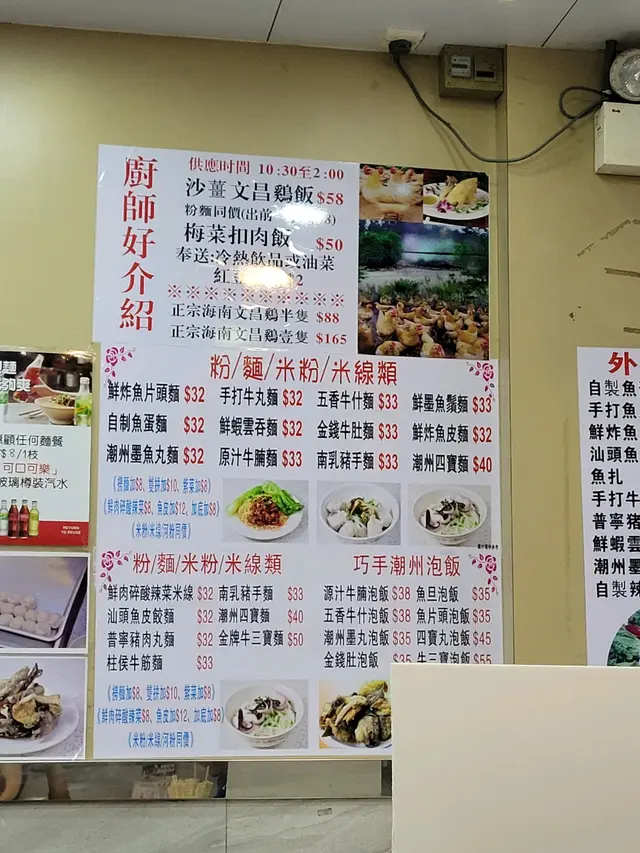 廚師好介紹
供應時間 10:30至2:00
沙薑文昌鷄飯 $58
粉麵同價(出前
梅菜扣肉飯 $50
奉送:冷熱飲品或油菜
紅
※※※※※※※※※※※※※
正宗海南文昌鷄半隻 $88
正宗海南文昌鷄壹隻 $165
粉/麵/米粉/米線類
鮮炸魚片頭麵 $32 手打牛丸麵 $32 五香牛什麵 $33 鮮墨魚鬚麵 $33
自制魚蛋麵 $32 鮮蝦雲吞麵 $32 金錢牛肚麵 $33 鮮炸魚皮麵 $32
潮州墨魚丸麵 $32 原汁牛腩麵 $33 南乳豬手麵 $33 潮州四寶麵 $40
《撈麵加$8、雙拼加$10、紫菜加$8》
《鮮肉碎酸辣菜$8、魚皮加$12、加底加$8》
《米粉/米線/河粉同價》
粉/麵/米粉/米線類
鮮肉碎酸辣菜米線 $32 南乳豬手麵 $33
汕頭魚皮餃麵 $32 潮州四寶麵 $40
普寧豬肉丸麵 $32 金牌牛三寶麵 $50
柱侯牛筋麵 $33
《撈麵加$8、雙拼加$10、紫菜加$8》
《鮮肉碎酸辣菜$8、魚皮加$12、加底加$8》
《米粉/米線/河粉同價》
巧手潮州泡飯
原汁牛腩泡飯 $38 魚旦泡飯 $35
五香牛什泡飯 $38 魚片頭泡飯 $35
潮州墨丸泡飯 $35 四寶丸泡飯 $45
金錢肚泡飯 $35 牛三寶泡飯 $55
顧任何麵餐
$8/1枝
可口可樂」
玻璃樽裝汽水
RETURN
TO REUSE
外
自製魚
手打魚
鮮炸魚
汕頭魚
魚扎
手打牛
普寧豬
鮮蝦雲
潮州墨
自製辣